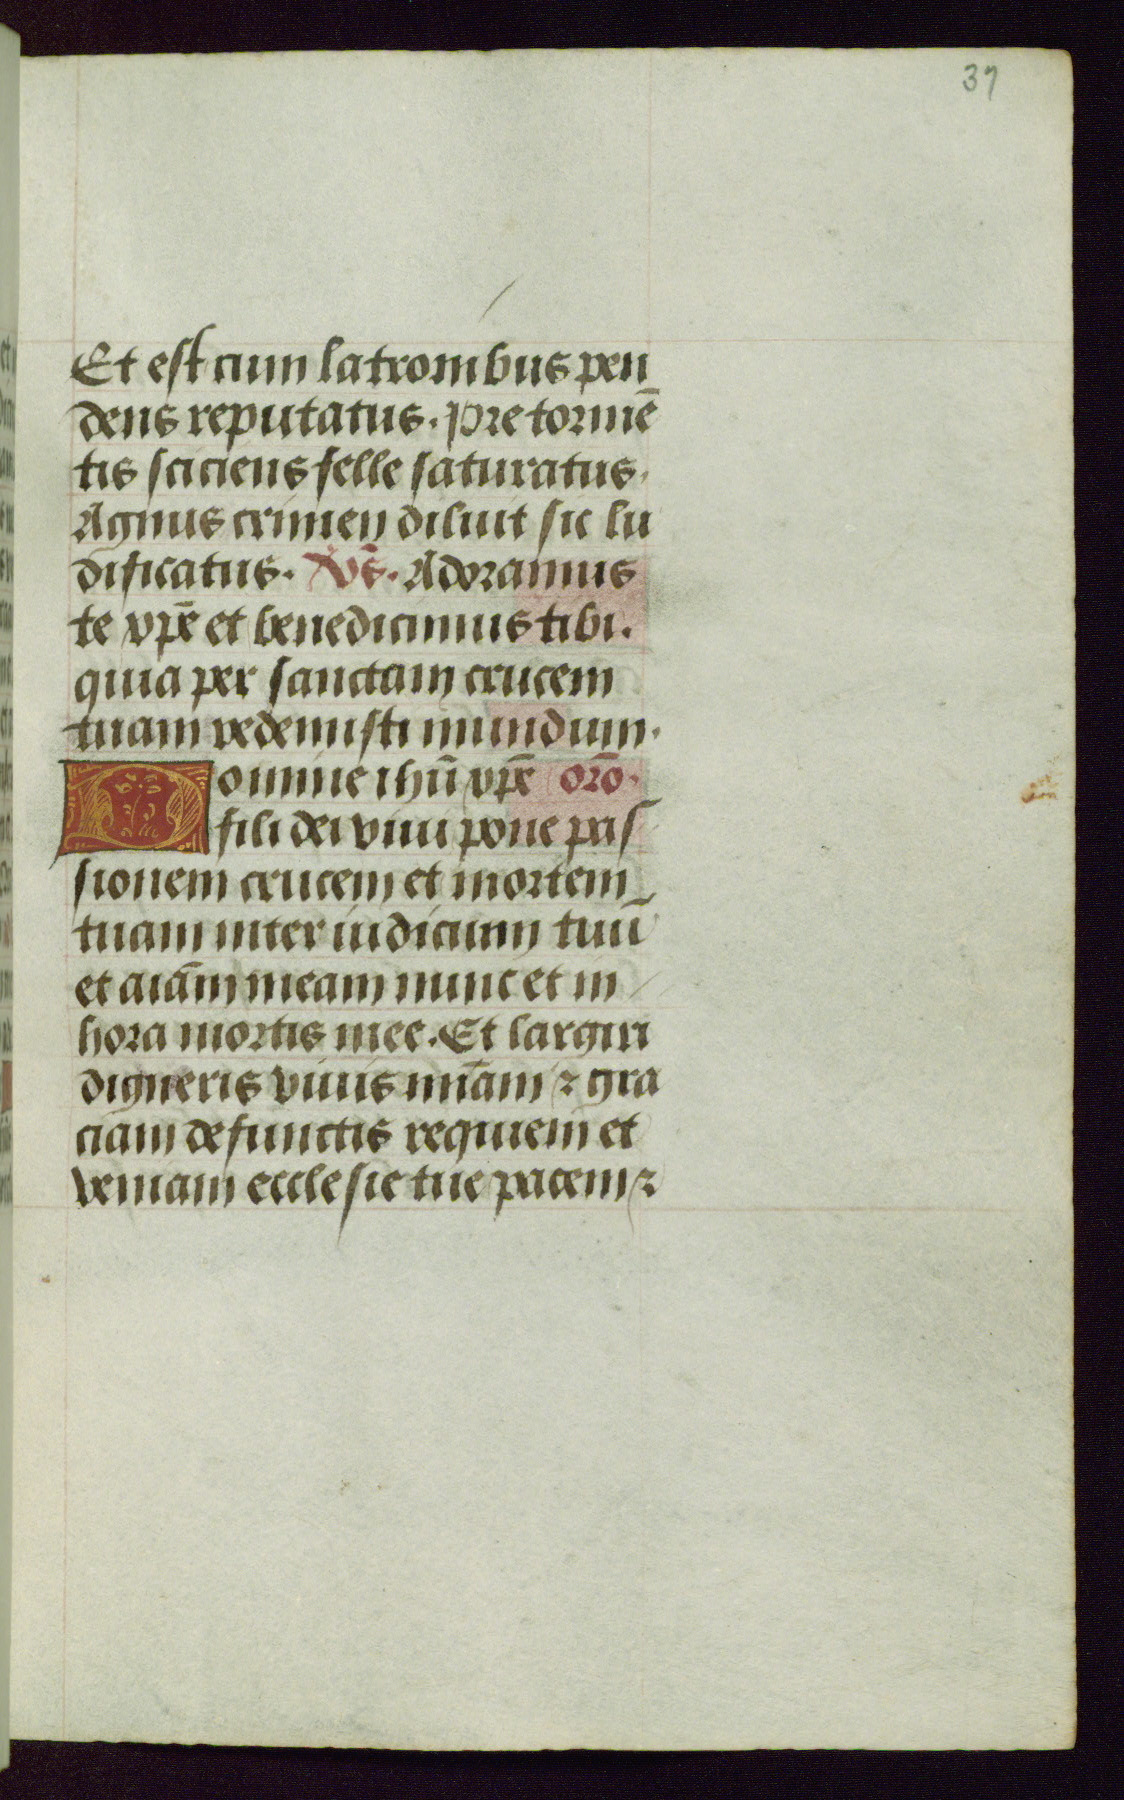 37
Et est cum latronibus pen
dens reputatus. Pre tormē
tis sciciens felle saturatus.
Agnus crimen diluit sic lu
dificatus. Vs̄. Adoramus
te xp̄e et benedicimus tibi.
quia per sanctam crucem
tuam redemisti mundum.
Domine ihū xp̄e orō.
fili dei viui pone pas
sionem crucem et mortem
tuam inter iudicium tuū
et aīam meam nunc et in
hora mortis mee. Et largiri
digneris viuis mīam ⁊ gra
ciam defunctis requiem et
veniam ecclesie tue pacem ⁊